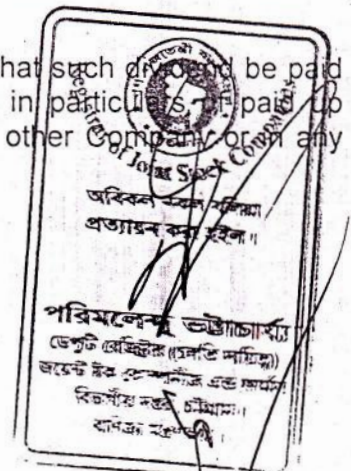 hat such dividend be paid
in particulars of paid up
other Company or in any
Registrar of Joint Stock Companies
অবিকল নকল বলিয়া
প্রত্যায়ন করা হইল।
পরিমলেন্দু ভট্টাচার্য্য
ডেপুটি রেজিষ্ট্রার (চলতি দায়িত্ব)
জয়েন্ট ষ্টক কোম্পানীজ এন্ড ফার্মস
বিভাগীয় দপ্তর, চট্টগ্রাম।